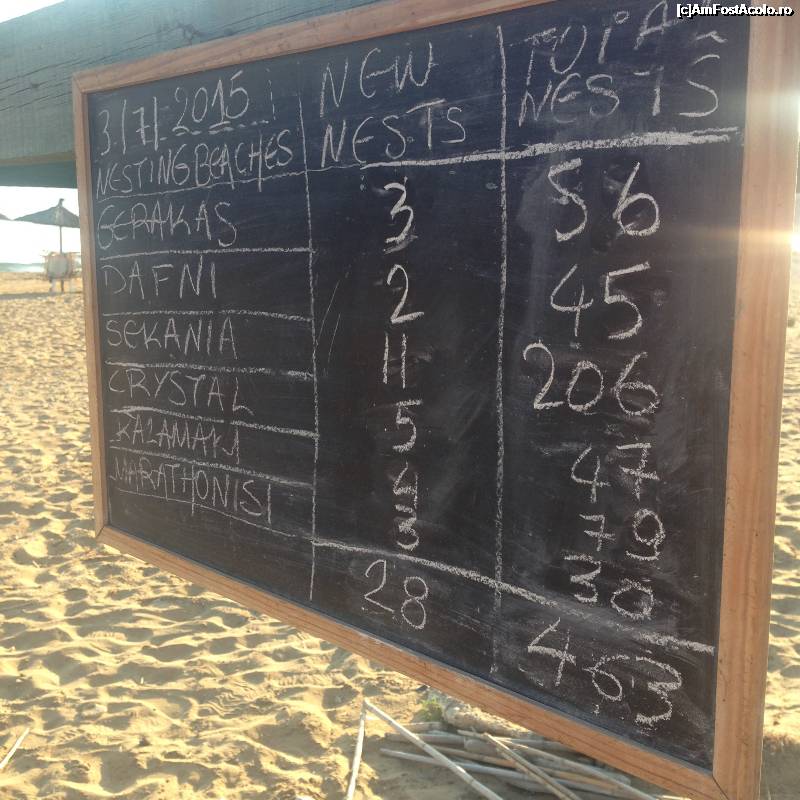 [c]AmFostAcolo.ro
3/7/2015 NEW NESTS TOTAL NESTS
NESTING BEACHES
GERAKAS 3 56
DAFNI 2 45
SEKANIA 11 206
CRYSTAL 5 47
KALAMAKI 4 79
MARATHONISI 3 30
28 463